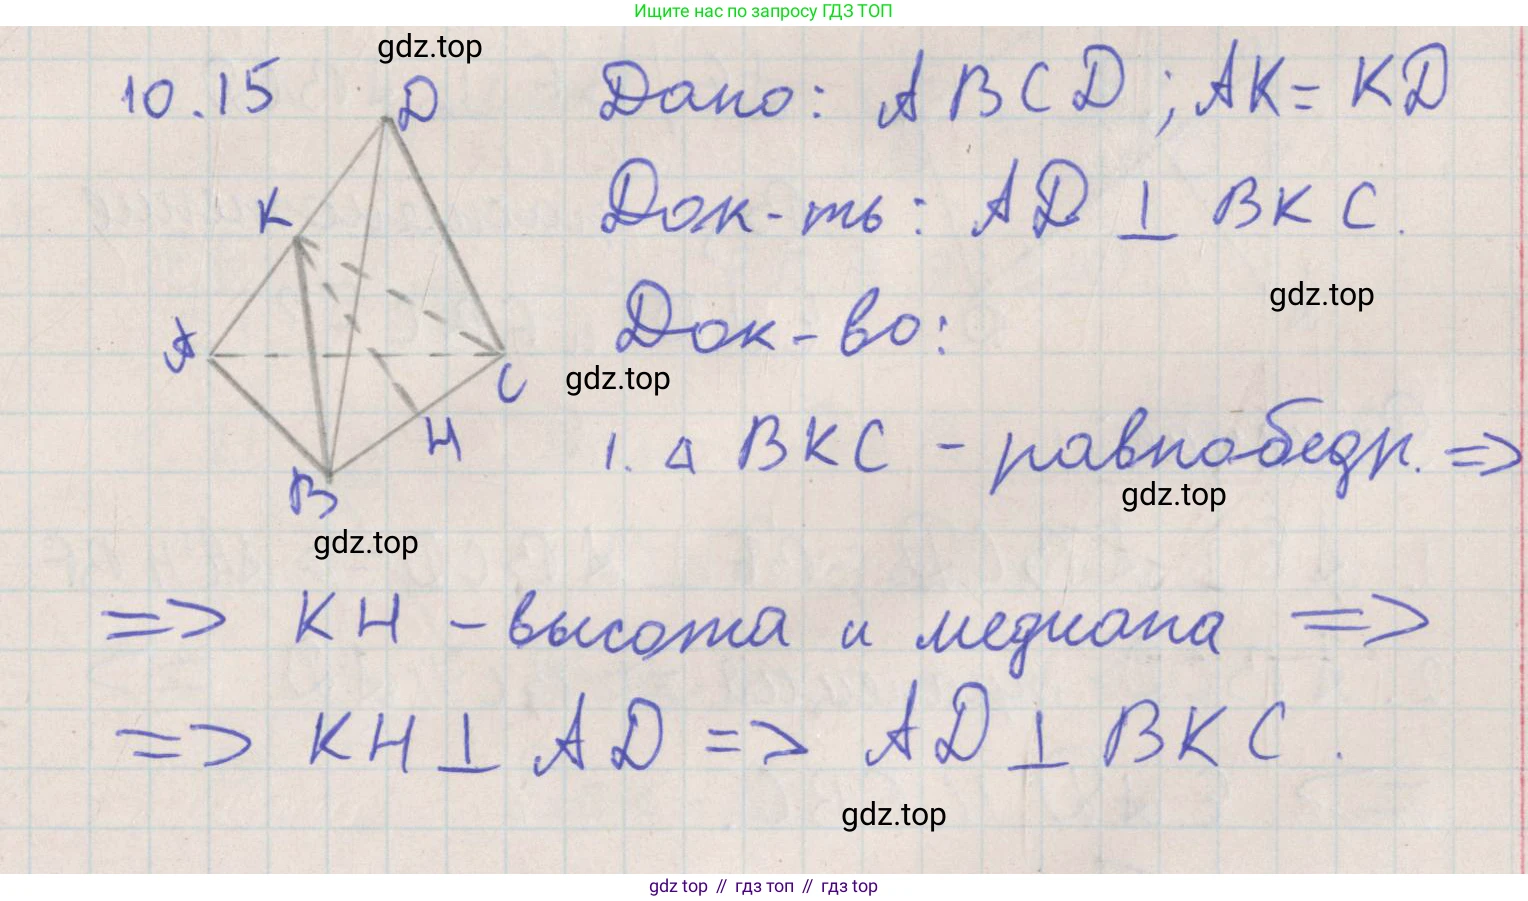 Ищите нас по запросу ГДЗ ТОП
gdz.top
10.15
D
Дано: ABCD; AK = KD
K
Док-ть: AD ⊥ BKC.
gdz.top
Док-во:
A
C
gdz.top
H
1. △ BKC - равнобедр. =>
gdz.top
B
gdz.top
=> KH - высота и медиана =>
=> KH ⊥ AD => AD ⊥ BKC.
gdz.top
gdz top // гдз топ // гдз top